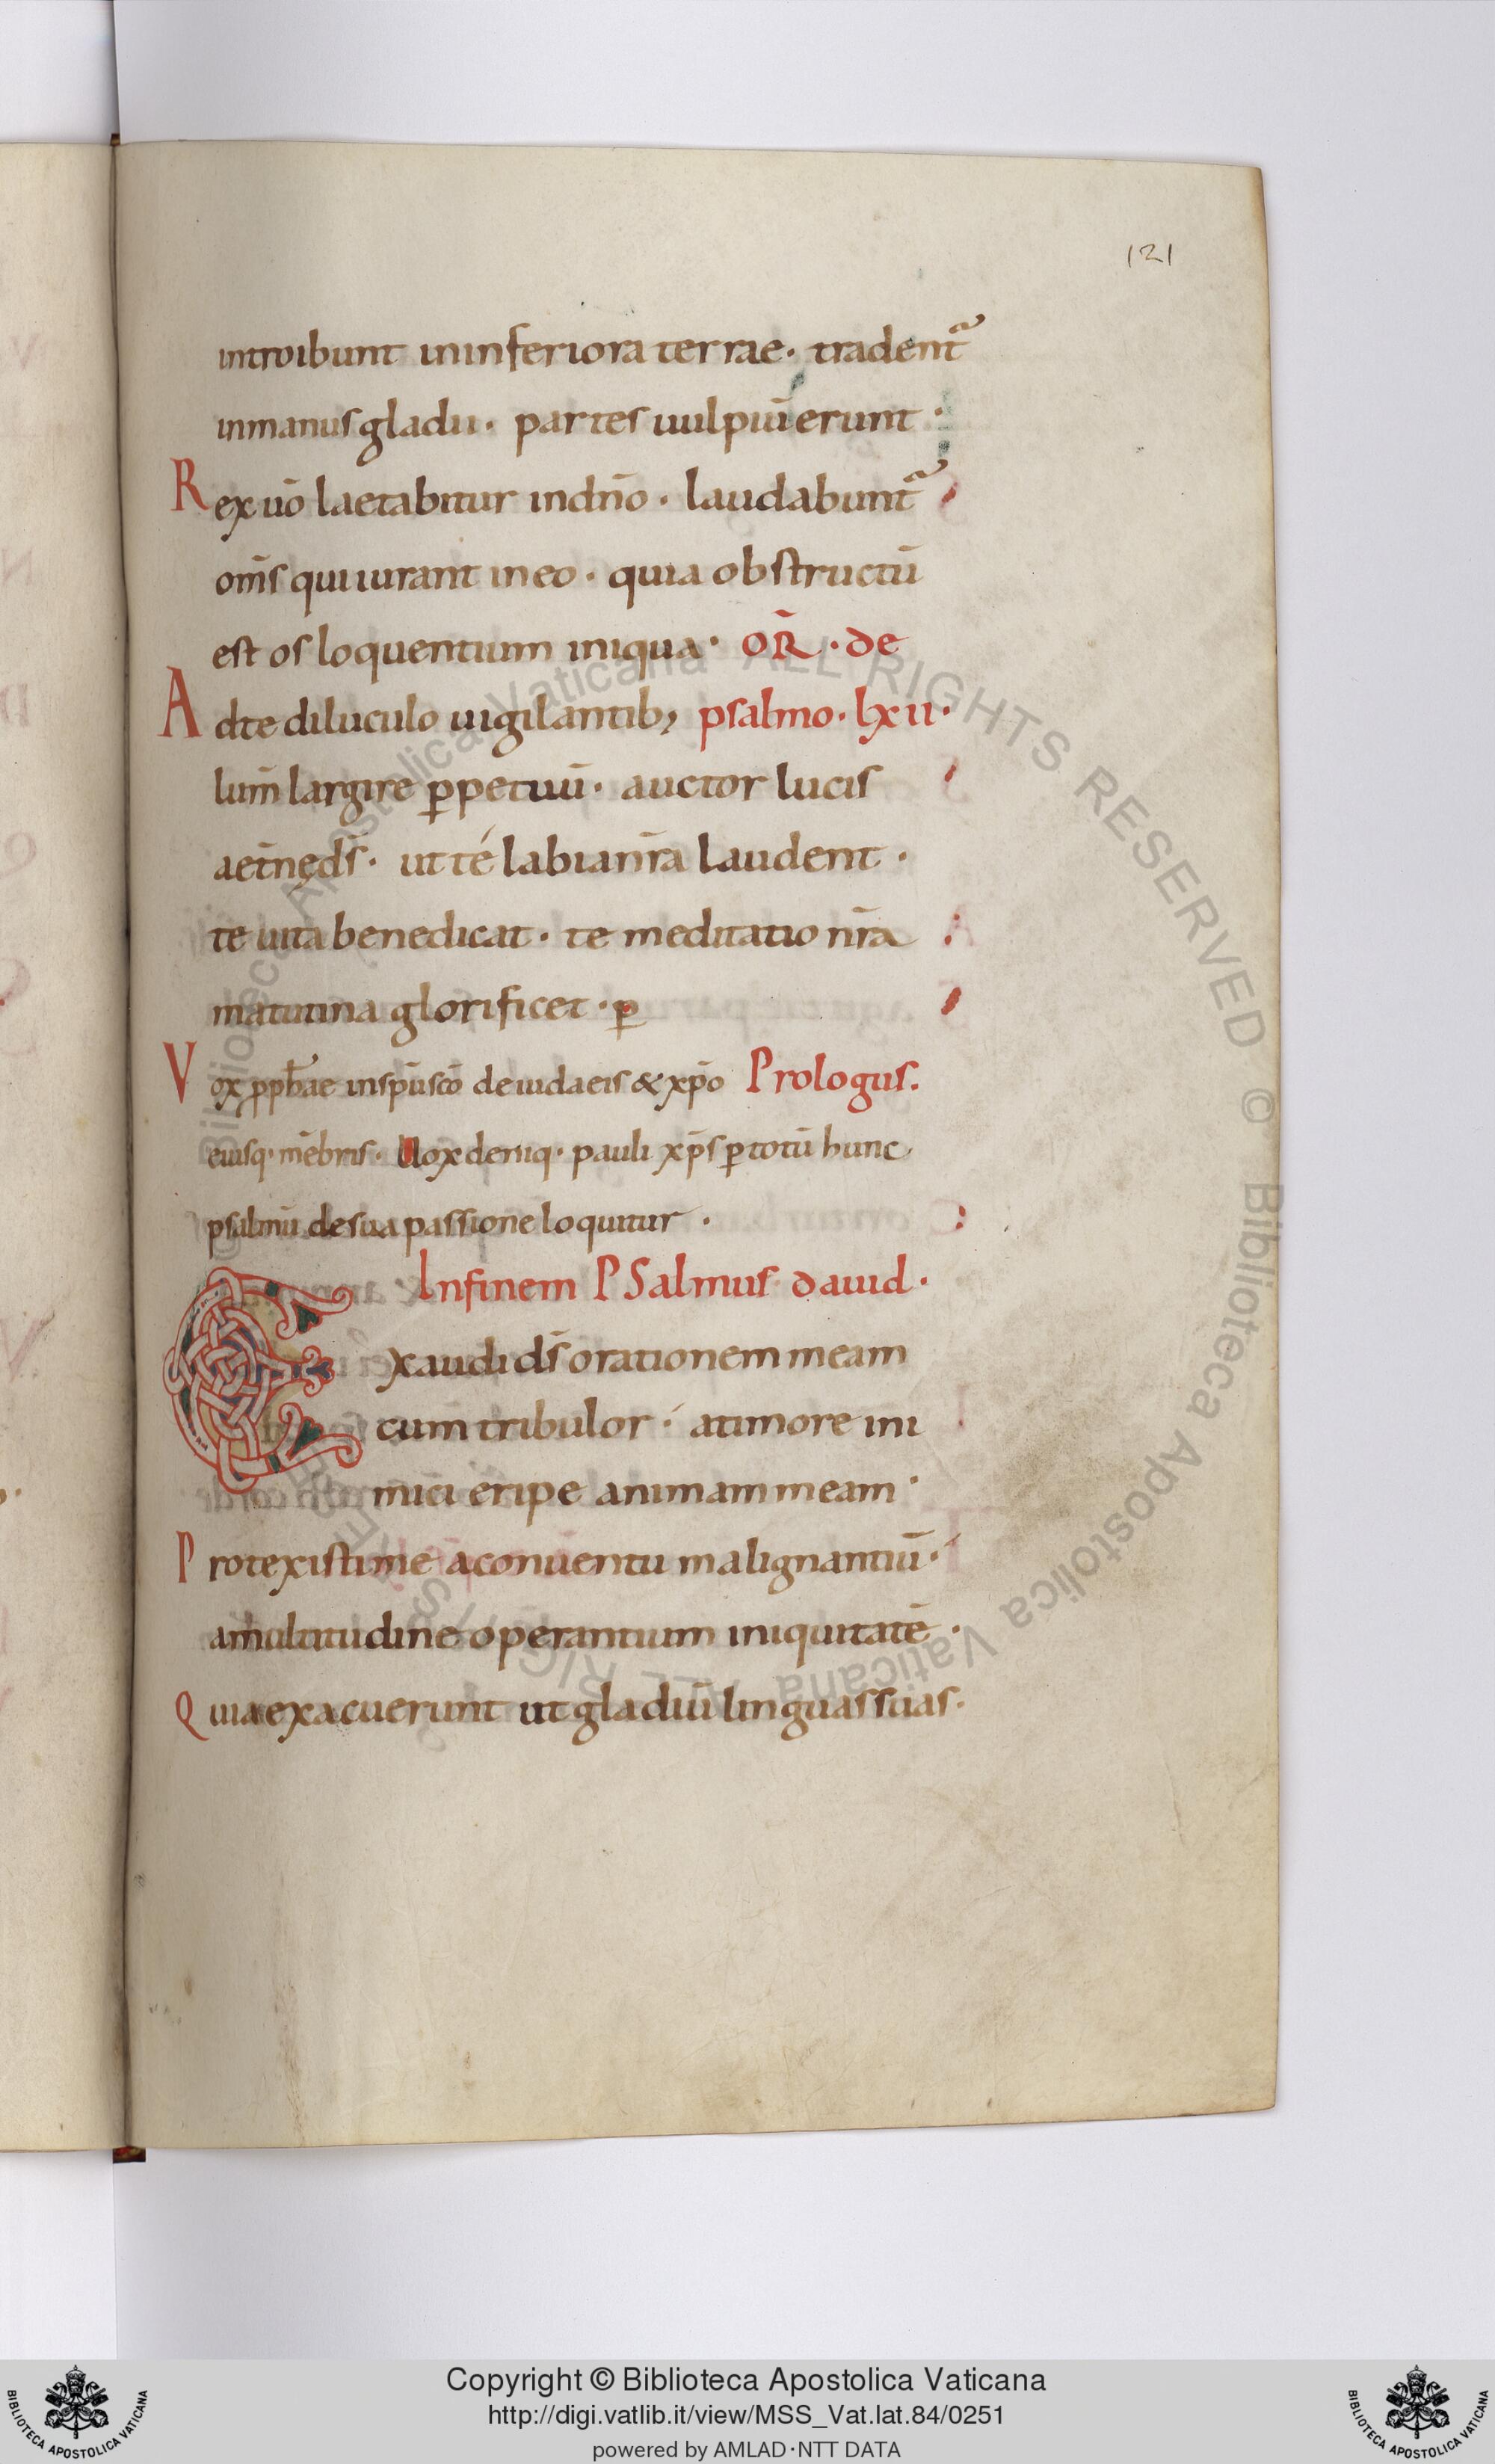 121
introibunt ininferiora terrae · tradent᷑
inmanus gladii · partes uulpiū erunt ·
Rex uō laetabitur indn̄o · laudabunt᷑
om̄s qui iurant in eo · quia obstructū
est os loquentium iniqua · OR̄ · de
Adte diluculo uigilantib; psalmo · lxii ·
lum̄ largire ꝑpetuū · auctor lucis
aet̄nę ds̄ · ut té labia nr̄a laudent ·
te uita benedicat · te meditatio nr̄a
matutina glorificet · ꝑ
Vox ꝓph̄ae in sp̄u scō de iudaeis & xp̄o Prologus.
eiusq· mēbris · Uox deniq· pauli xp̄s ꝑ totū hunc
psalmū de sua passione loquitur ·
Infinem PSalmus dauid ·
Exaudi ds̄ orationem meam
cum tribulor · a timore ini
mici eripe animam meam ·
Protexisti me a conuentu malignantiū ·
a multitudine operantium iniquitatē ·
Quia exacuerunt ut gladiū linguas suas ·
© Biblioteca Apostolica Vaticana ALL RIGHTS RESERVED © Biblioteca Apostolica Vaticana ALL RIGHTS RESERVED
Copyright © Biblioteca Apostolica Vaticana
http://digi.vatlib.it/view/MSS_Vat.lat.84/0251
powered by AMLAD·NTT DATA
BIBLIOTECA APOSTOLICA VATICANA
BIBLIOTECA APOSTOLICA VATICANA